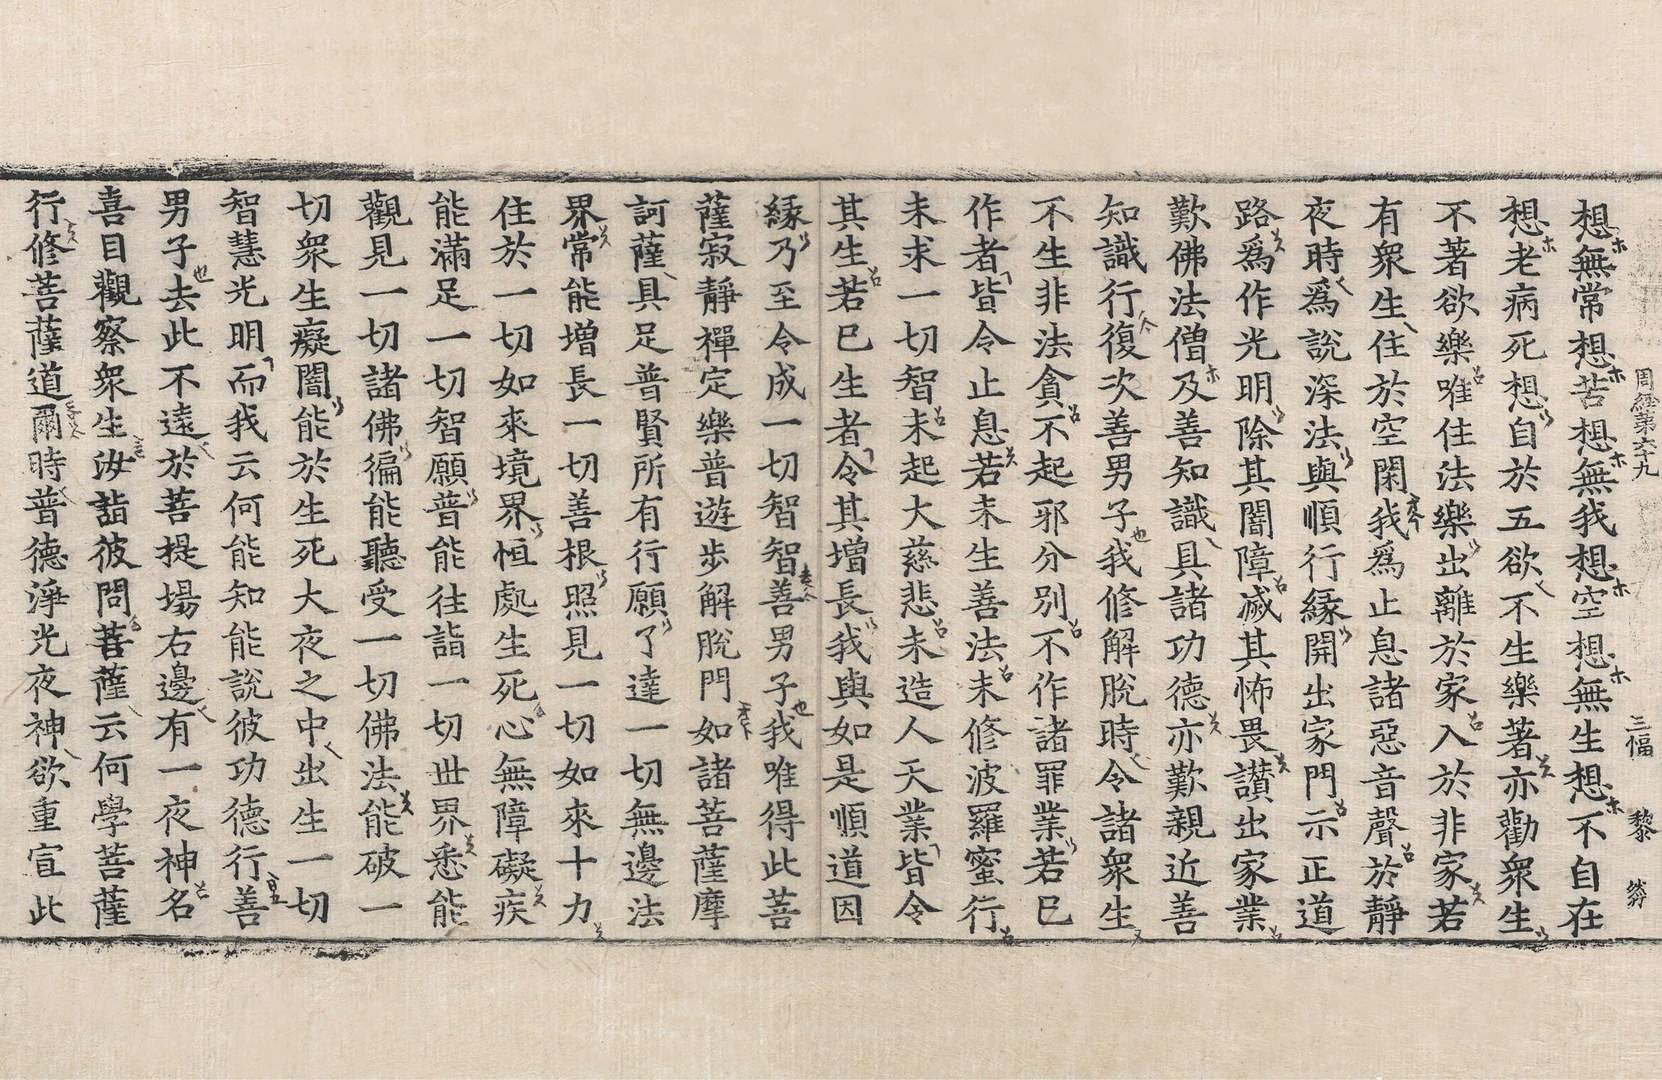 周經第六十九 三幅 黎
想無常想苦想無我想空想無生想不自在
想老病死想自於五欲不生樂著亦勸衆生
不著欲樂唯住法樂出離於家入於非家若
有衆生住於空閑我爲止息諸惡音聲於靜
夜時爲說深法與順行緣開出家門示正道
路爲作光明除其闇障滅其怖畏讃出家業
歎佛法僧及善知識具諸功德亦歎親近善
知識行復次善男子我修解脫時令諸衆生
不生非法貪不起邪分別不作諸罪業若已
作者皆令止息若未生善法未修波羅蜜行
未求一切智未起大慈悲未造人天業皆令
其生若已生者令其增長我與如是順道因
緣乃至令成一切智智善男子我唯得此菩
薩寂靜禪定樂普遊步解脫門如諸菩薩摩
訶薩具足普賢所有行願了達一切無邊法
界常能增長一切善根照見一切如來十力
住於一切如來境界恒處生死心無障礙疾
能滿足一切智願普能往詣一切世界悉能
觀見一切諸佛徧能聽受一切佛法能破一
切衆生癡闇能於生死大夜之中出生一切
智慧光明而我云何能知能說彼功德行善
男子去此不遠於菩提場右邊有一夜神名
喜目觀察衆生汝詣彼問菩薩云何學菩薩
行修菩薩道爾時普德淨光夜神欲重宣此